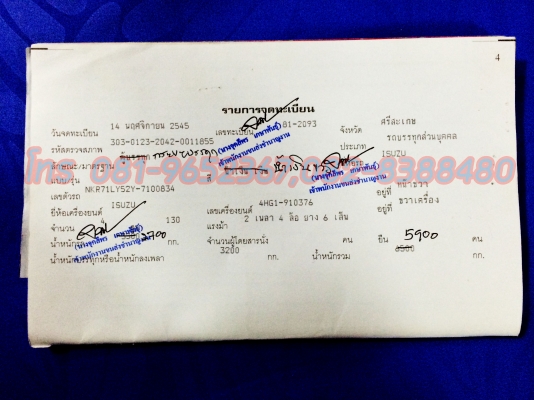 4
รายการจดทะเบียน
วันจดทะเบียน 14 พฤศจิกายน 2545 เลขทะเบียน 81-2093 จังหวัด ศรีสะเกษ
รหัสตรวจสภาพ 303-0123-2042-0011855 ประเภท รถบรรทุกส่วนบุคคล
ลักษณะ/มาตรฐาน กระบะบรรทุก ISUZU
แบบ/รุ่น สี
เลขตัวรถ NKR71LY52Y-7100834 อยู่ที่ หน้าขวา
ยี่ห้อเครื่องยนต์ ISUZU เลขเครื่องยนต์ 4HG1-910376 อยู่ที่ ขวาเครื่อง
จำนวน 4 130 แรงม้า 2 เพลา 4 ล้อ ยาง 6 เส้น
น้ำหนักรถ 2700 กก. จำนวนผู้โดยสารนั่ง คน ยืน 5900 คน
น้ำหนักบรรทุกหรือน้ำหนักลงเพลา 3200 กก. น้ำหนักรวม 6500 กก.
เจ้าพนักงานขนส่งชำนาญงาน
โทร.081-965
8388480